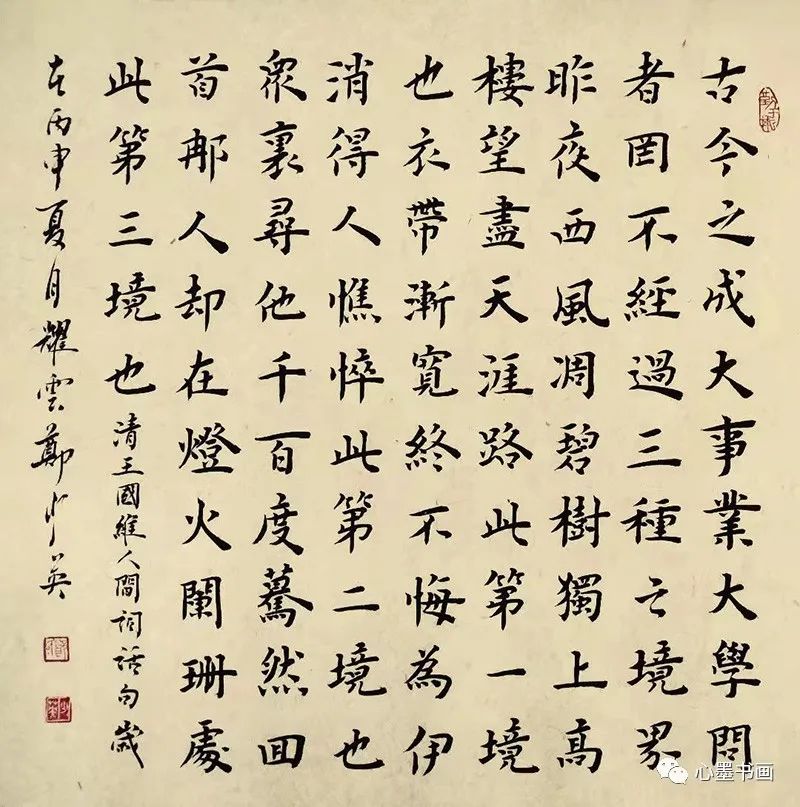 古今之成大事業大學問
者罔不經過三種之境界
昨夜西風凋碧樹獨上高
樓望盡天涯路此第一境
也衣帶漸寬終不悔為伊
消得人憔悴此第二境也
衆裏尋他千百度驀然回
首那人却在燈火闌珊處
此第三境也 清王國維人間詞話句歲
在丙申夏月耀雲鄭少英
心墨书画